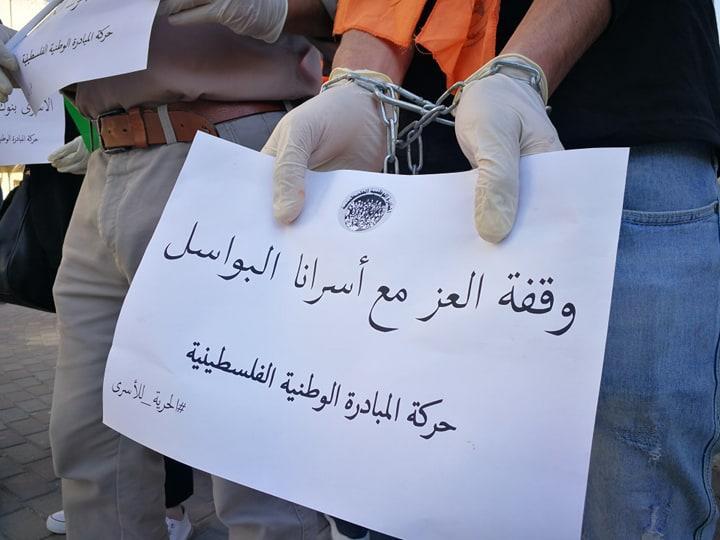 حركة المبادرة الوطنية الفلسطينية
حركة المبادرة الوطنية
وقفة العز مع أسرانا البواسل
حركة المبادرة الوطنية الفلسطينية
#الحرية_للأسرى